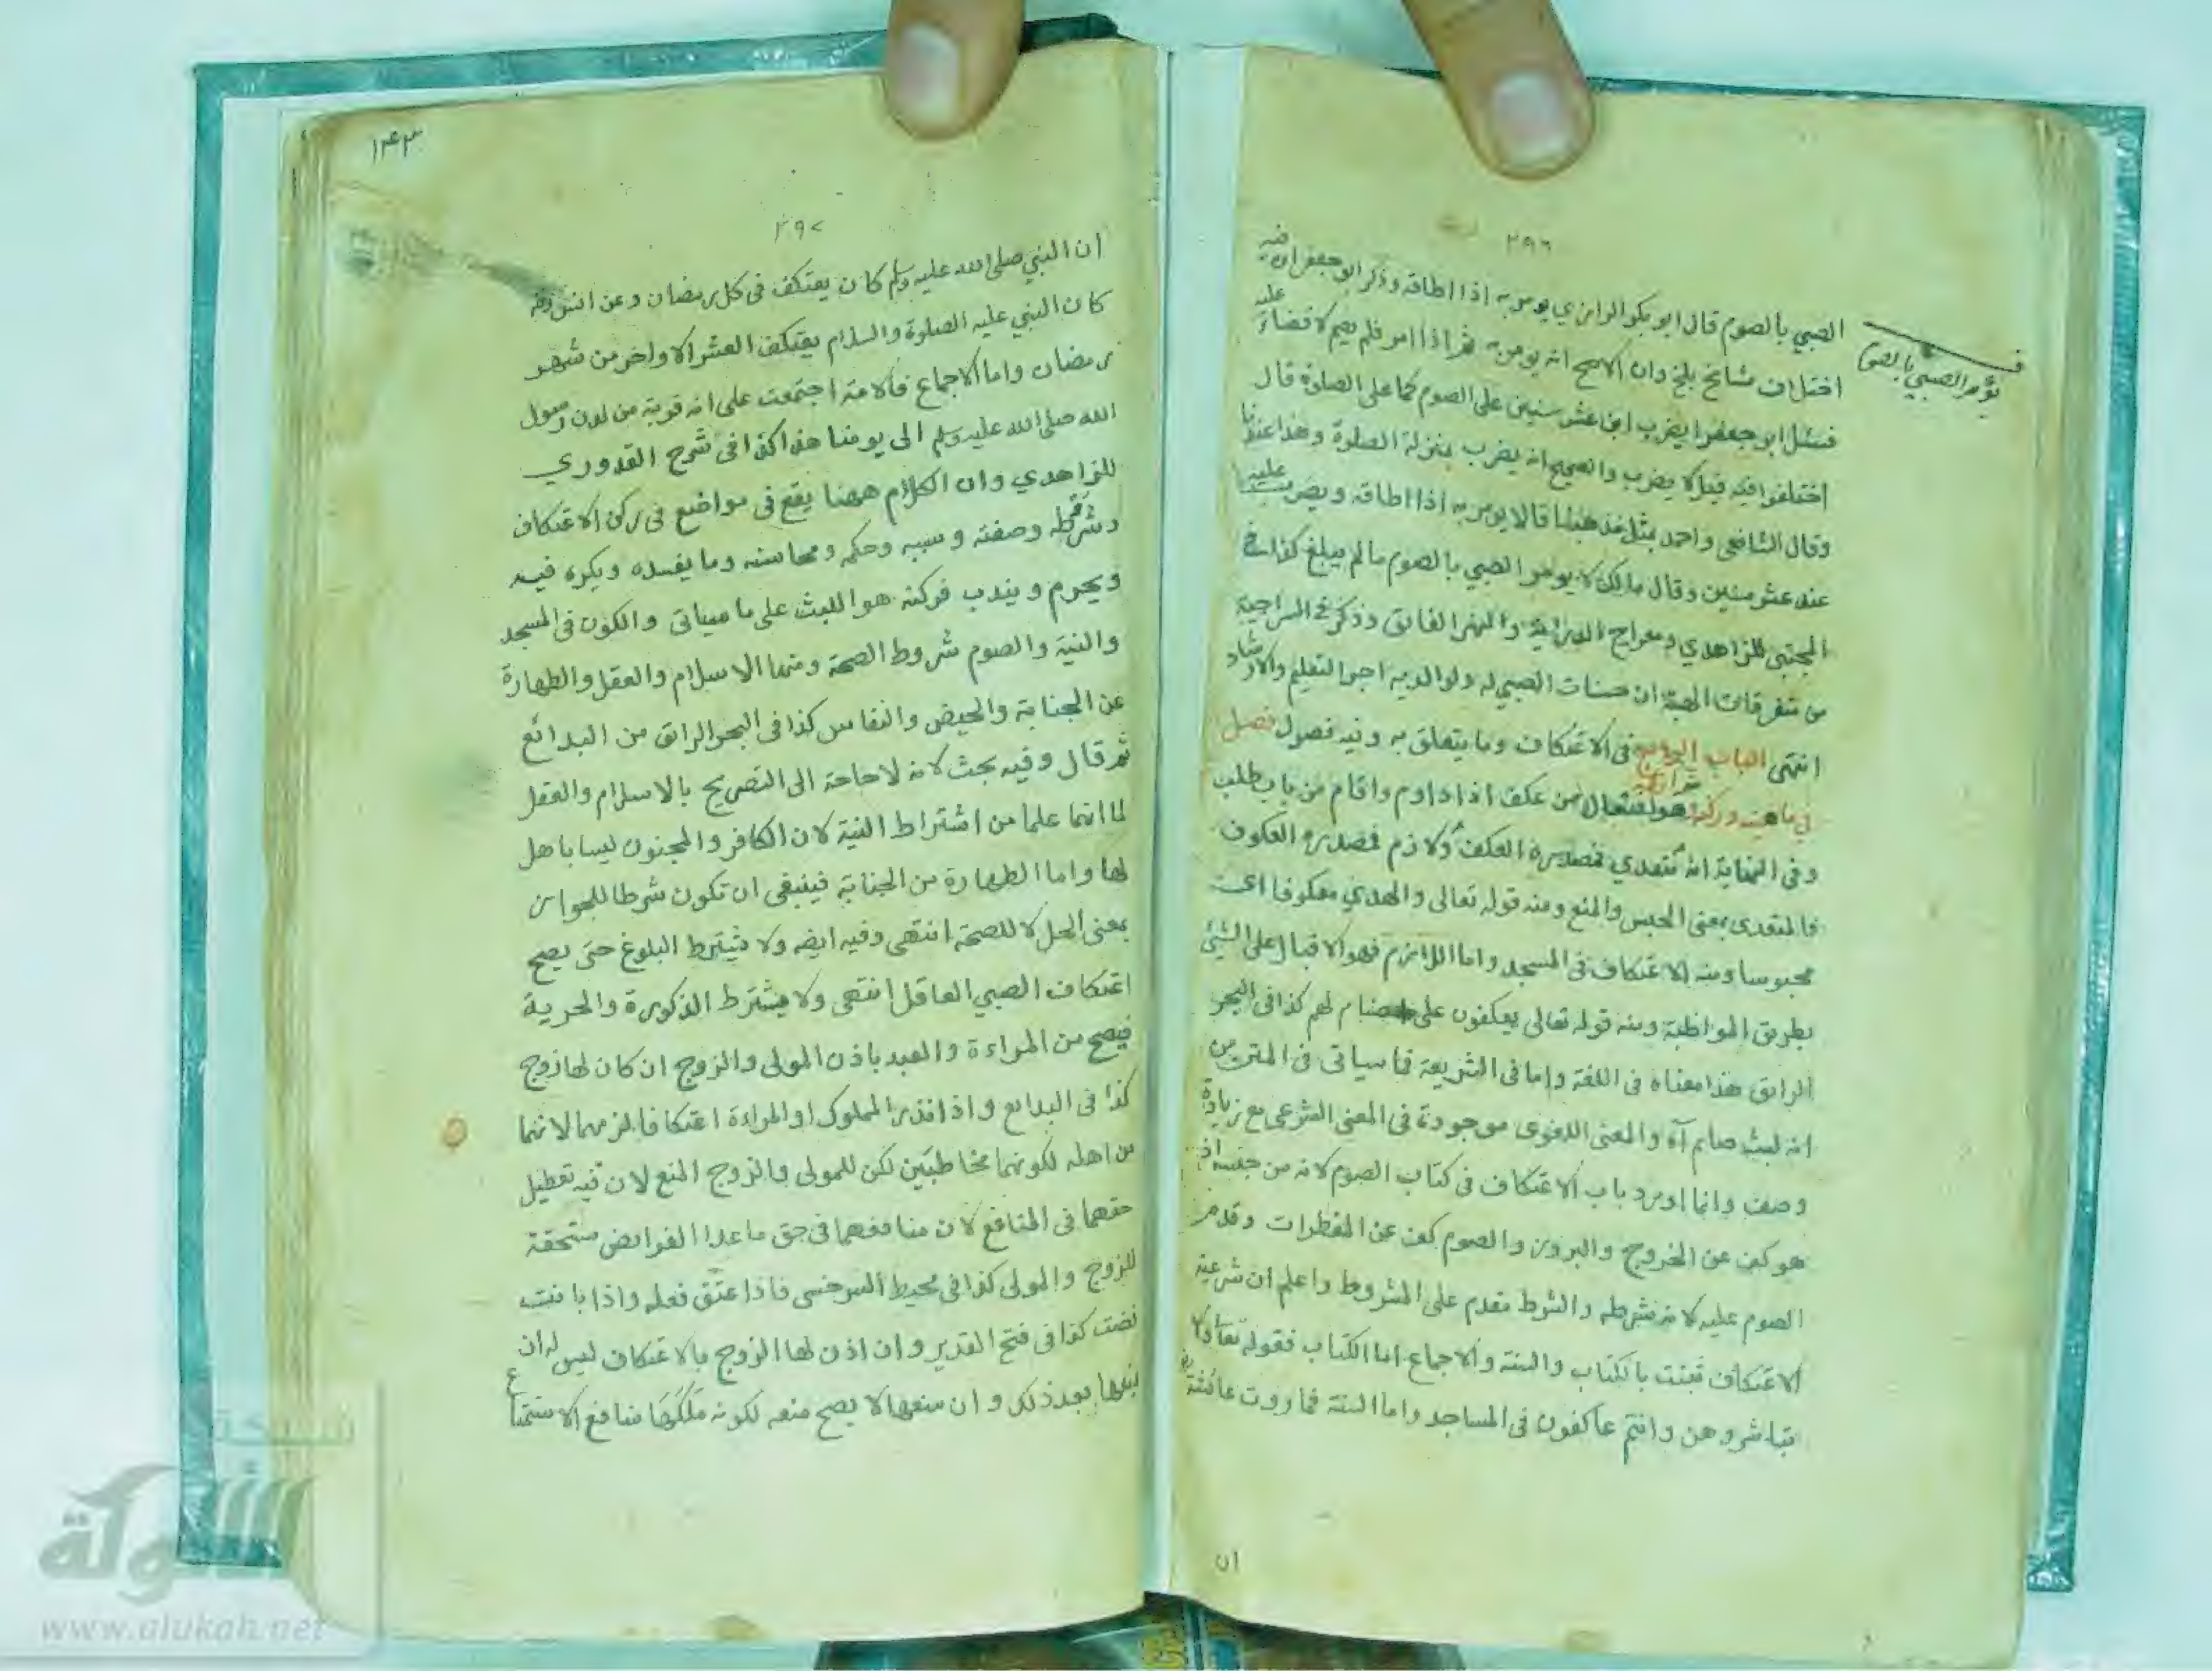 ٢٩٦
يؤمر الصبي بالصوم
الصبي بالصوم قال ابو بكر الرازي يومر به اذا اطاقه وذكر ابو جعفر ان فيه
اختلاف مشايخ بلخ وان الاصح انه يومر به ثم اذا امر فلم يصم لا قضاء عليه
فسئل ابو جعفر ايضرب ابن عشر سنين على الصوم كما على الصلوة قال
اختلفوا فيه قيل لا يضرب والصحيح انه يضرب بمنزلة الصلوة وهذا عندنا
وقال الشافعي واحمد بمثل مذهبنا قالا يومر به اذا اطاقه ويضرب عليه
عند عشر سنين وقال مالك لا يومر الصبي بالصوم ما لم يبلغ كذا في
المجتبى للزاهدي ومعراج الدراية والنهر الفائق وذكر في السراجية
من متفرقات الهبة ان حسنات الصبي له ولوالديه اجر التعليم والارشاد
انتهى الباب الرابع في الاعتكاف وما يتعلق به وفيه فصول فصل
في ماهيته وركنه هو افتعال من عكف اذا داوم واقام من باب طلب
وفي النهاية انه متعدي فمصدره العكف ولازم فمصدره العكوف
فالمتعدى بمعنى الحبس والمنع ومنه قوله تعالى والهدي معكوفا اى
محبوسا ومنه الاعتكاف في المسجد واما اللازم فهو الاقبال على الشئ
بطريق المواظبة ومنه قوله تعالى يعكفون على اصنام لهم كذا في البحر
الرائق هذا معناه في اللغة واما في الشريعة فما سياتى في المتن من
انه لبث صايم آه والمعنى اللغوى موجودة في المعنى الشرعي مع زيادة
وصف وانما اورد باب الاعتكاف في كتاب الصوم لانه من جنسه اذ
هو كف عن الخروج والبروز والصوم كف عن المفطرات وقدم
الصوم عليه لانه شرطه والشرط مقدم على المشروط واعلم ان شرعية
الاعتكاف ثبتت بالكتاب والسنة والاجماع اما الكتاب فقوله تعا ولا
تباشروهن وانتم عاكفون في المساجد واما السنة فما روت عائشة رض
ان
١٤٣
٢٩٧
ان النبي صلى الله عليه وسلم كان يعتكف في كل رمضان وعن انس رضه
كان النبي عليه الصلوة والسلام يعتكف العشر الاواخر من شهر
رمضان واما الاجماع فالامة اجتمعت على انه قربة من لدن رسول
الله صلى الله عليه وسلم الى يومنا هذا كذا في شرح القدوري
للزاهدي وان الكلام ههنا يقع في مواضع في ركن الاعتكاف
وشرطه وصفته وسببه وحكمه ومحاسنه وما يفسده ويكره فيه
ويحرم ويندب فركنه هو اللبث على ما سياتى والكون في المسجد
والنية والصوم شروط الصحة ومنها الاسلام والعقل والطهارة
عن الجنابة والحيض والنفاس كذا في البحر الرائق من البدائع
ثم قال وفيه بحث لانه لا حاجة الى التصريح بالاسلام والعقل
لما انهما علما من اشتراط النية لان الكافر والمجنون ليسا باهل
لها واما الطهارة من الجنابة فينبغى ان تكون شرطا للجواز
بمعنى الحل لا للصحة انتهى وفيه ايضه ولا يشترط البلوغ حتى يصح
اعتكاف الصبي العاقل انتهى ولا يشترط الذكورة والحرية
فيصح من المراءة والعبد باذن المولى والزوج ان كان لها زوج
كذا في البدايع واذا نذر المملوك او المراءة اعتكافا لزمهما لانهما
من اهله لكونهما مخاطبين لكن للمولى والزوج المنع لان فيه تعطيل
حقهما في المنافع لان منافعهما في حق ما عدا الفرايض مستحقة
للزوج والمولى كذا في محيط السرخسى فاذا عتق فعله واذا بانت
قضت كذا في فتح القدير وان اذن لها الزوج بالاعتكاف ليس له ان
يمنعها بعد ذلك وان منعها لا يصح منعه لكونه ملكها منافع الاستمتاع
شبكة
الألوكة
www.alukah.net